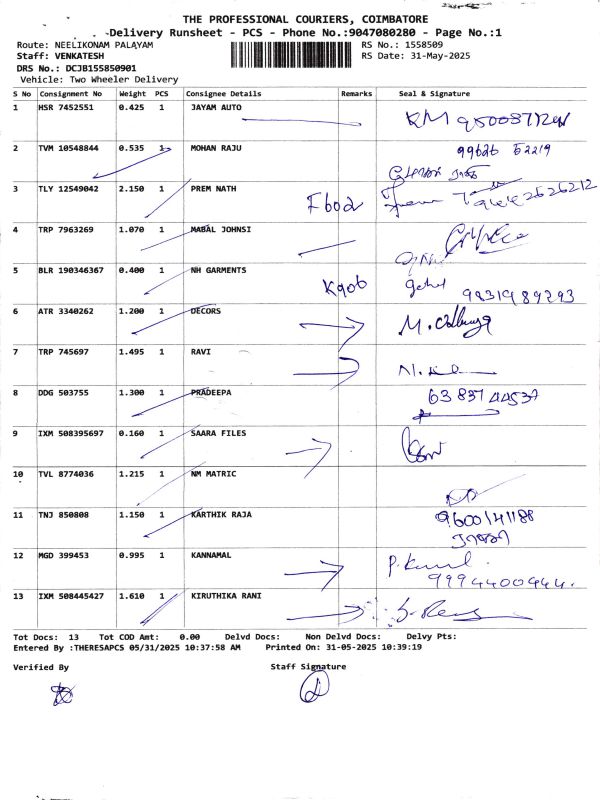 THE PROFESSIONAL COURIERS, COIMBATORE
Delivery Runsheet - PCS - Phone No.:9047080280 - Page No.:1
Route: NEELIKONAM PALAYAM RS No.: 1558509
Staff: VENKATESH RS Date: 31-May-2025
DRS No.: DCJB155850901
Vehicle: Two Wheeler Delivery
S No Consignment No Weight PCS Consignee Details Remarks Seal & Signature
1 HSR 7452551 0.425 1 JAYAM AUTO
2 TVM 10548844 0.535 1 MOHAN RAJU 99626 52219
3 TLY 12549042 2.150 1 PREM NATH F602
4 TRP 7963269 1.070 1 MABAL JOHNSI
5 BLR 190346367 0.400 1 NH GARMENTS K906
9831989293
6 ATR 3340262 1.200 1 DECORS
7 TRP 745697 1.495 1 RAVI
8 DDG 503755 1.300 1 PRADEEPA 63837 44537
9 IXM 508395697 0.160 1 SAARA FILES
10 TVL 8774036 1.215 1 NM MATRIC
11 TNJ 850808 1.150 1 KARTHIK RAJA 9600141188
12 MGD 399453 0.995 1 KANNAMAL
9994400944.
13 IXM 508445427 1.610 1 KIRUTHIKA RANI
Tot Docs: 13 Tot COD Amt: 0.00 Delvd Docs: Non Delvd Docs: Delvy Pts:
Entered By :THERESAPCS 05/31/2025 10:37:58 AM Printed On: 31-05-2025 10:39:19
Verified By Staff Signature